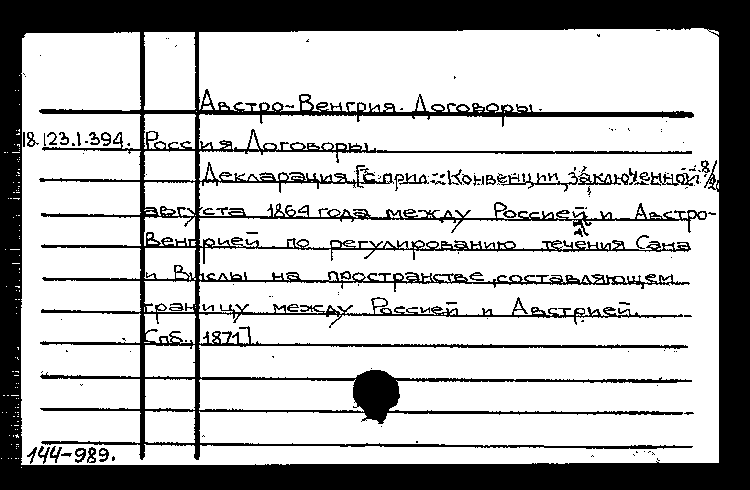 Австро-Венгрия. Договоры.
18.123.1.394. Россия. Договоры.
Декларация [с прил.: Конвенции, заключенной 8/20
августа 1864 года между Россией и Австро-
Венгрией по регулированию течения Сана
и Вислы на пространстве, составляющем
границу между Россией и Австрией.
Спб., 1871].
144-989.